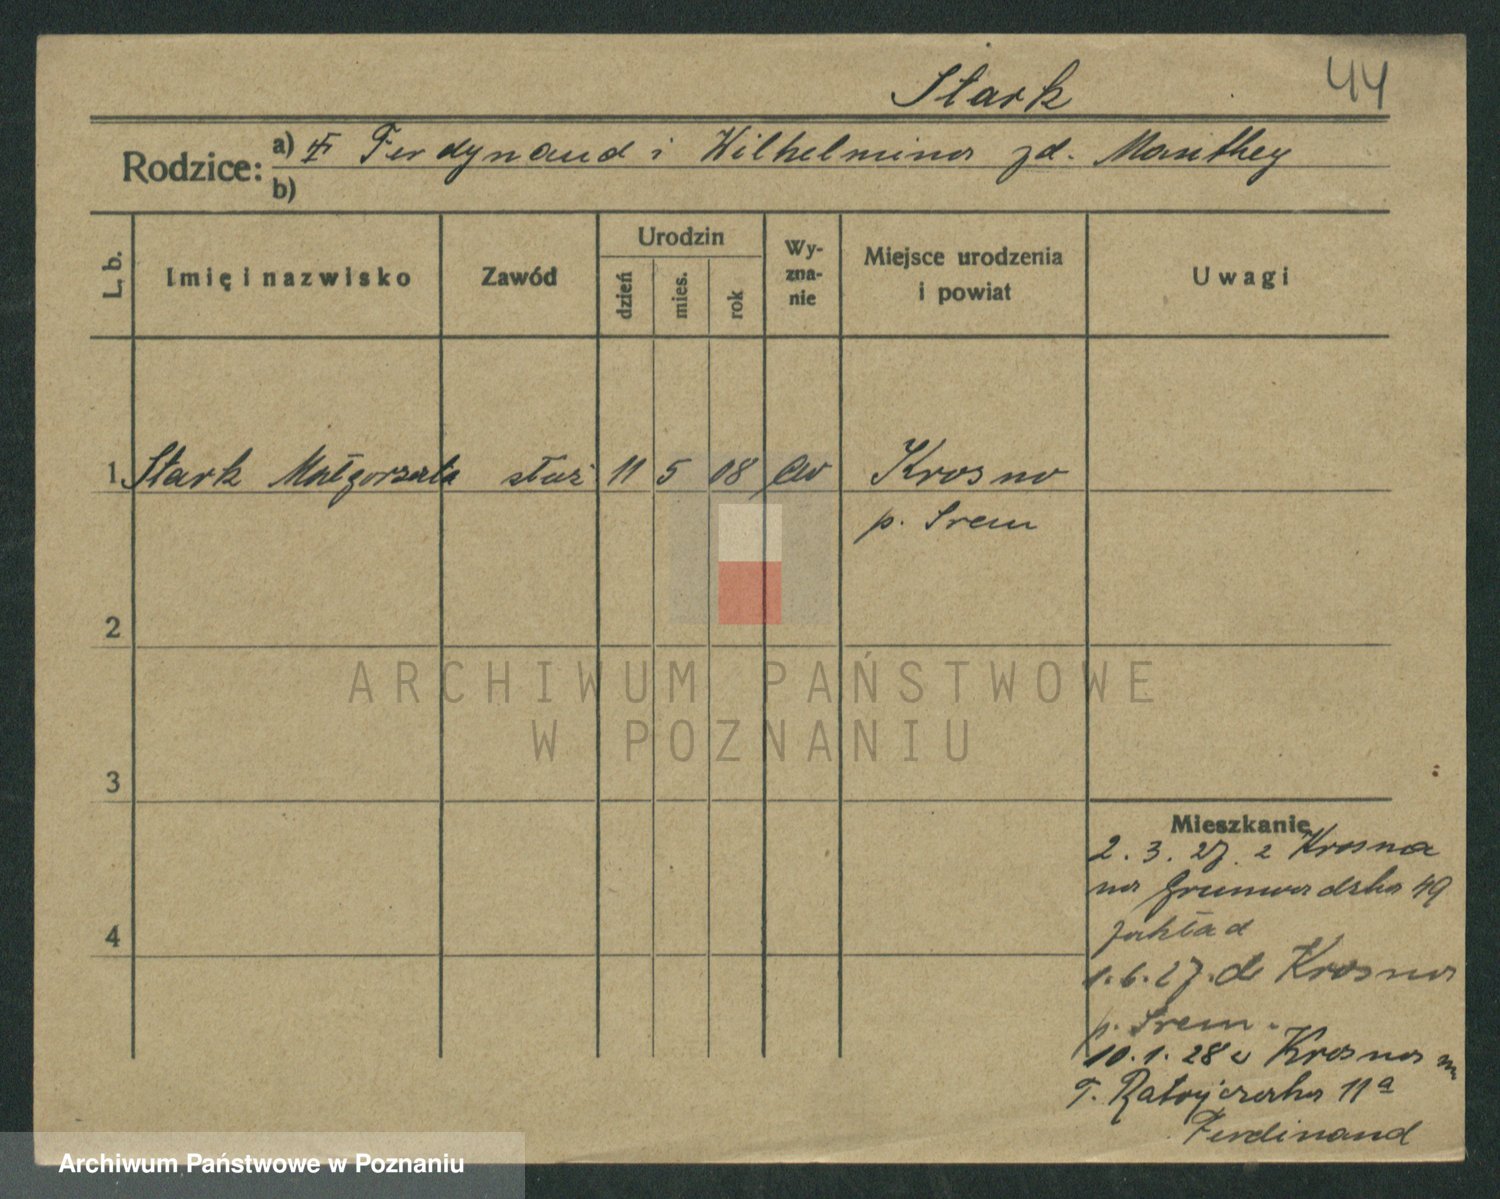 Stark
44
Rodzice: a) Ferdynand i Wilhelmina zd. Manthey
b)
L. b.
Imię i nazwisko
Zawód
Urodzin
dzień
mies.
rok
Wy-
zna-
nie
Miejsce urodzenia
i powiat
Uwagi
1 Stark Małgorzata służ 11 5 08 ew Krosno
p. Srem
2
3
4
ARCHIWUM PAŃSTWOWE
W POZNANIU
Mieszkanie
2. 3. 27. z Krosna
na Grunwadzka 49
zakład
1. 6. 27. do Krosna
p. Srem.
10. 1. 28 z Krosna
11a
Ferdinand
Archiwum Państwowe w Poznaniu